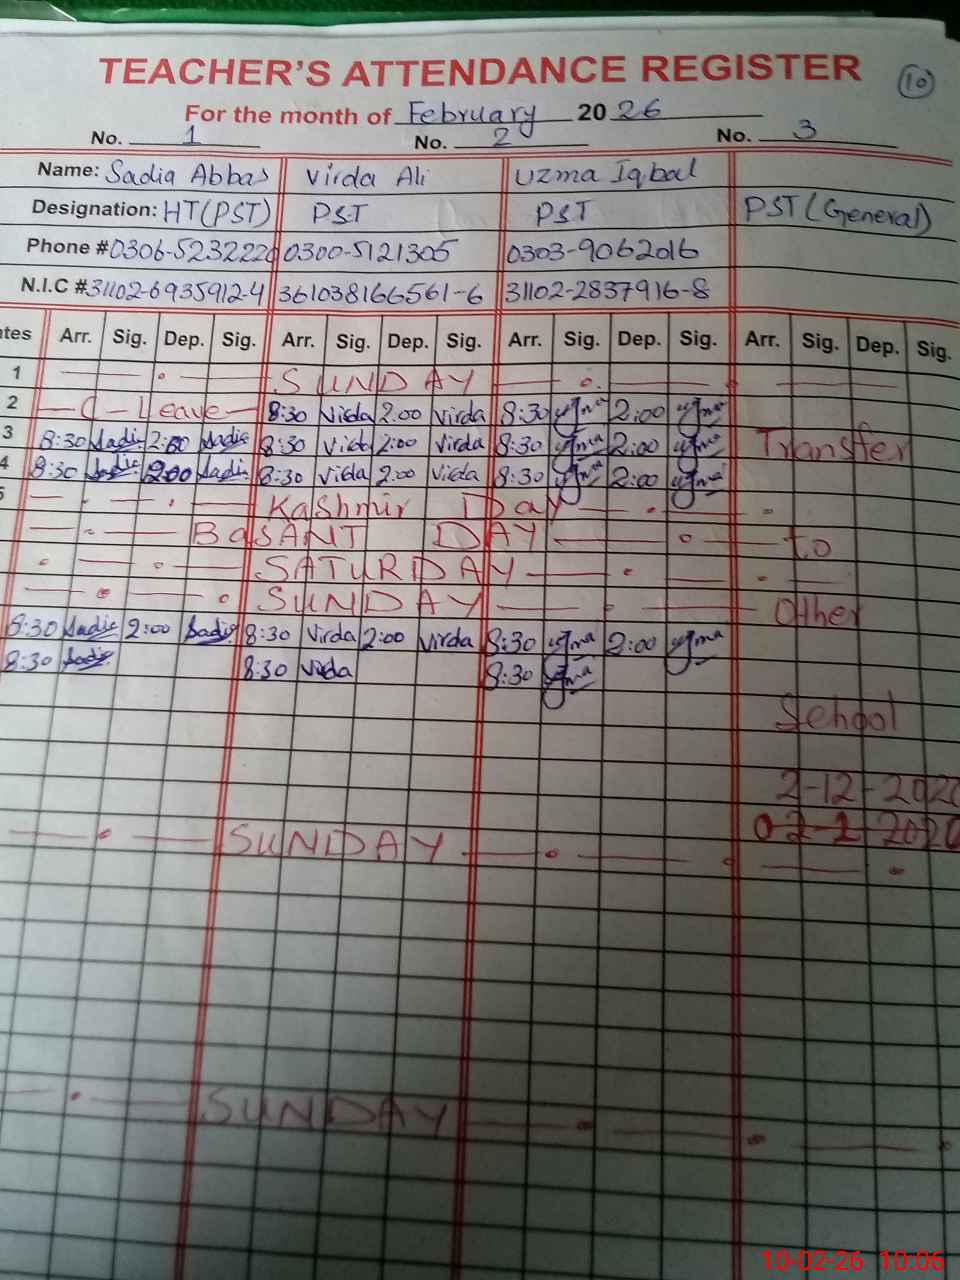 TEACHER'S ATTENDANCE REGISTER 10
For the month of February 2026
No. 1 No. 2 No. 3
Name: Sadia Abbas Virda Ali Uzma Iqbal
Designation: HT(PST) PST PST PST (General)
Phone #0306-5232220 0300-5121305 0303-9062016
N.I.C #31102-6935912-4 361038166561-6 31102-2837916-8
ates Arr. Sig. Dep. Sig. Arr. Sig. Dep. Sig. Arr. Sig. Dep. Sig. Arr. Sig. Dep. Sig.
1 SUNDAY
2 C-Leave 8:30 Virda 2:00 Virda 8:30 2:00
3 8:30 Sadia 2:00 Sadia 8:30 Virda 2:00 Virda 8:30 2:00 Transfer
4 8:30 Sadia 2:00 Sadia 8:30 Virda 2:00 Virda 8:30 2:00
5 Kashmir Day
BaSANT DAY to
SATURDAY
SUNDAY Other
8:30 Sadia 2:00 Sadia 8:30 Virda 2:00 Virda 8:30 2:00
8:30 Sadia 8:30 Virda 8:30
School
2-12-202
SUNDAY
SUNDAY
10-02-26 10:06